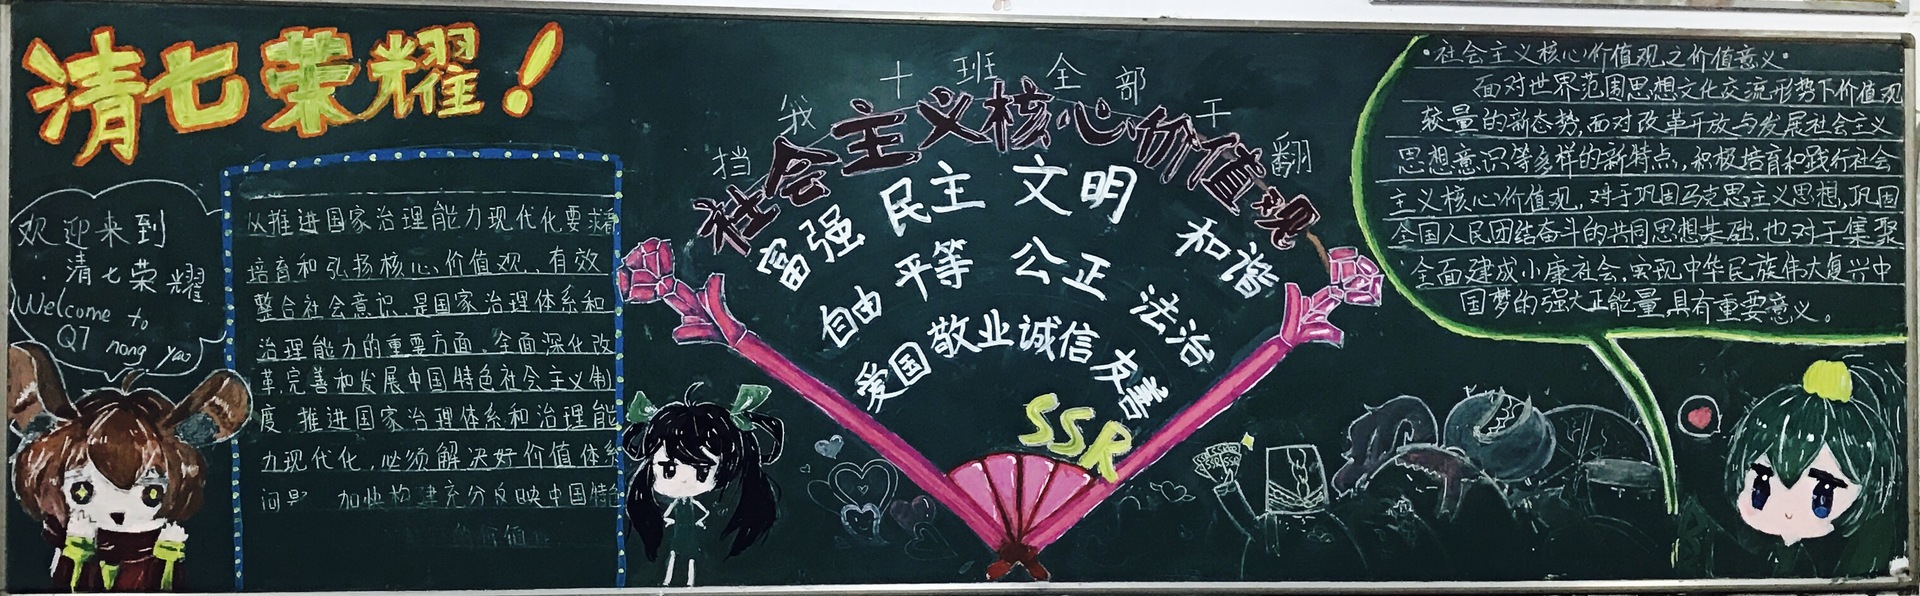 清七荣耀！
欢迎来到
清七荣耀
Welcome to
Q7 rong yao
从推进国家治理能力现代化要求看
培育和弘扬核心价值观，有效
整合社会意识，是国家治理体系和
治理能力的重要方面。全面深化改
革，完善和发展中国特色社会主义制
度，推进国家治理体系和治理能
力现代化，必须解决好价值体系
问题 加快构建充分反映中国特色
挡我十班全部干翻
社会主义核心价值观
富强 民主 文明 和谐
自由 平等 公正 法治
爱国 敬业 诚信 友善
SSR
·社会主义核心价值观之价值意义·
面对世界范围思想文化交流形势下价值观
较量的新态势，面对改革开放与发展社会主义
思想意识等多样的新特点，积极培育和践行社会
主义核心价值观，对于巩固马克思主义思想，巩固
全国人民团结奋斗的共同思想基础，也对于集聚
全面建成小康社会，实现中华民族伟大复兴中
国梦的强大正能量，具有重要意义。